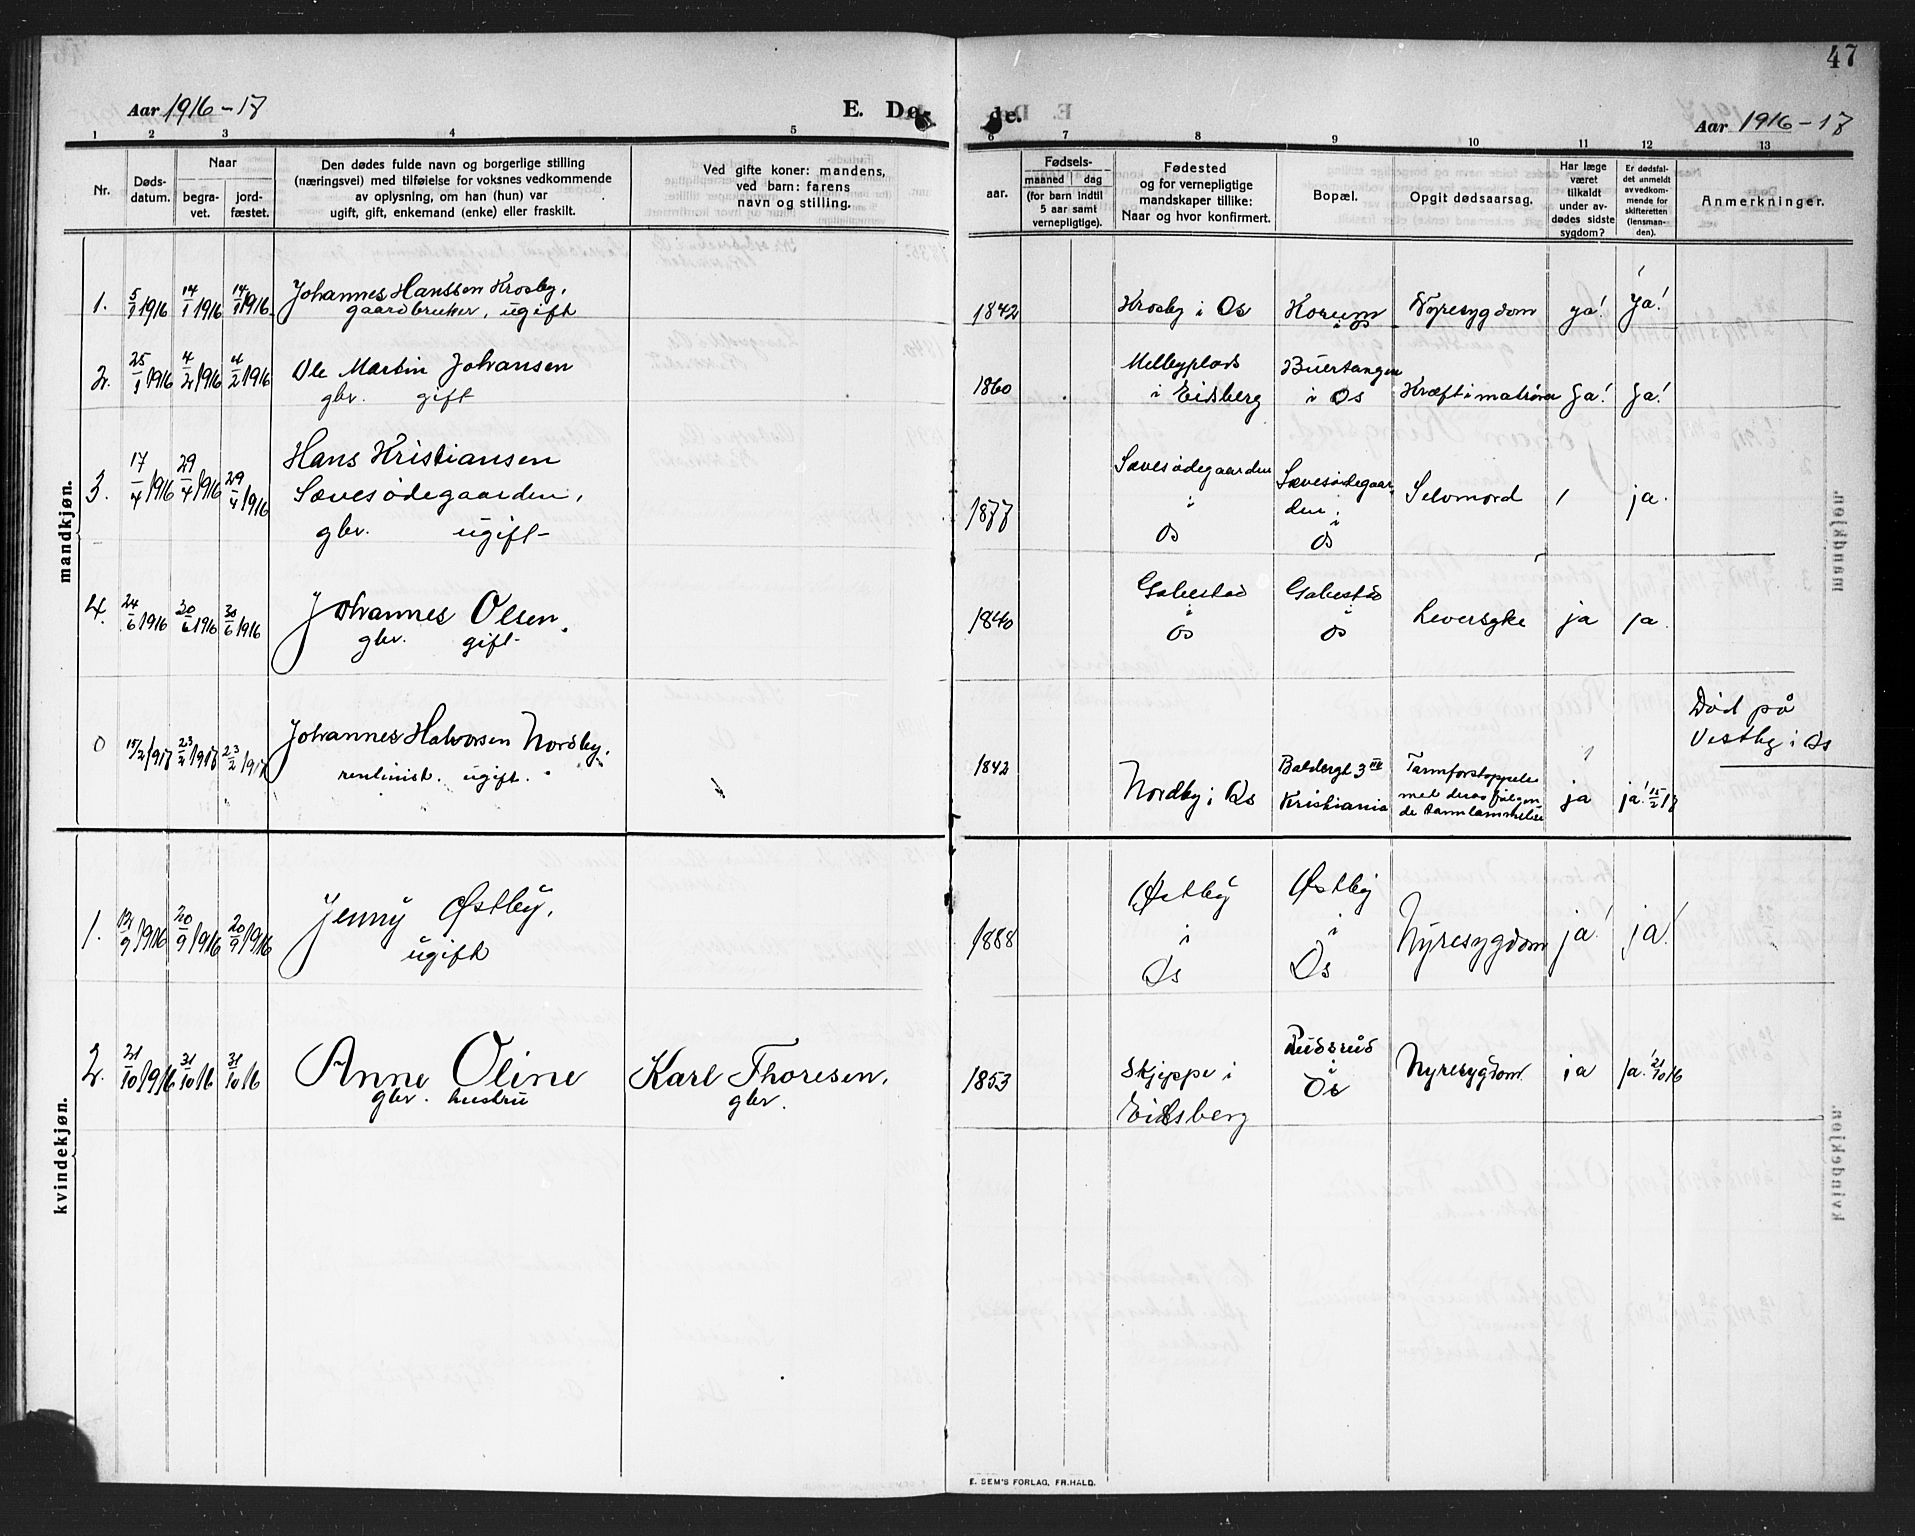 47
Aar 1916-17
E. Dø-
de.
Aar 1916-17
1 2 3 4 5 6 7 8 9 10 11 12 13
Nr.
Døds-
datum.
Naar
begra-
vet.
jord-
fæstet.
Den dødes fulde navn og borgerlige stilling
(næringsvei) med tilføielse for voksnes vedkommende
av oplysning, om han (hun) var
ugift, gift, enkemand (enke) eller fraskilt.
Ved gifte koner: mandens,
ved barn: farens
navn og stilling.
Fødsels-
aar.
maaned dag
(for barn indtil
5 aar samt
vernepligtige).
Fødested
og for vernepligtige
mandskaper tillike:
Naar og hvor konfirmert.
Bopæl.
Opgit dødsaarsag.
Har læge
været
tilkaldt
under av-
dødes sidste
sygdom?
Er dødsfal-
det anmeldt
av vedkom-
mende for
skifteretten
(lensman-
den).
Anmerkninger.
mandkjøn.
1. 5/1 1916 14/1 1916 14/1 1916 Johannes Hanssen Krosby, 1842 Krosby i Os Nyresygdom ja! Ja!
gaardbruker, ugift
2. 25/1 1916 4/2 1916 4/2 1916 Ole Martin Johansen 1860 Melbyplads Buertangen Kræft i matrører Ja! Ja!
gbr. gift i Eidsberg i Os
3. 17/4 1916 29/4 1916 29/4 1916 Hans Kristiansen 1877 Sævesødegaarden Sævesødegaar- Selvmord ja.
Sævesødegaarden, i den i
gbr. ugift Os Os
4. 24/6 1916 30/6 1916 30/6 1916 Johannes Olsen. 1840 Gabestad Gabestad Leversyke ja ja.
gbr. gift i i
Os Os
0 15/2 1917 23/2 1917 23/2 1917 Johannes Halvorsen Nordby. 1842 Nordby i Os Baldersgt 3 Tarmforstoppelse ja ja! 15/2 17 Død på
rentenist. ugift. Kristiania med deraf følgen Vestby i Os
de tarmlammelse
kvindekjøn.
1. 12/9 1916 20/9 1916 20/9 1916 Jenny Østby, 1888 Østby Østby Nyresygdom ja! ja!
ugift i i
Os Os
2. 21/10 1916 31/10 16 31/10 16 Anne Oline Karl Thoresen, 1853 Skjeppe i Rudsrud Nyresygdom ja ja! 21/10 16
gbr. hustru gbr. Eidsberg i
Os
E. SEM'S FORLAG, FR.HALD.